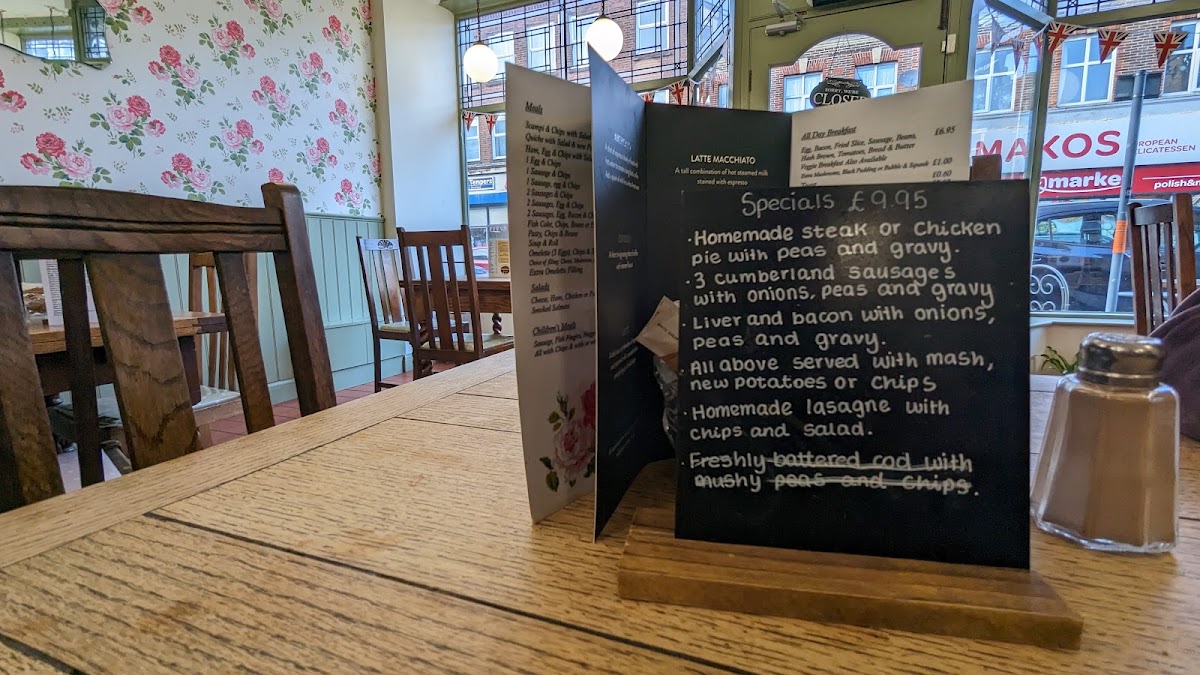 Meals
Scampi & Chips with Salad
Quiche with Salad & new P
Ham, Egg & Chips with Sala
1 Egg & Chips
1 Sausage & Chips
1 Sausage, egg & Chips
2 Sausage & Chips
2 Sausages, Egg & Chips
2 Sausages, Egg, Bacon & Ch
Fish Cake, Chips, Beans or
Pasty, Chips & Beans
Soup & Roll
Omelette (3 Eggs), Chips &
Extra Omelette Filling
Salads
Cheese, Ham, Chicken or
Smoked Salmon
Children's Meals
Sausage, Fish Fingers,
All with Chips &
LATTE MACCHIATO
A tall combination of hot steamed milk
stained with espresso
All Day Breakfast
Egg, Bacon, Fried Slice, Sausage, Beans, £6.95
Hash Brown, Tomatoes, Bread & Butter
Veggie Breakfast Also Available
Extra Mushrooms, Black Pudding or Bubble & Squeak £1.00
£0.60
Specials £9.95
· Homemade steak or Chicken
pie with peas and gravy.
· 3 cumberland sausages
with onions, peas and gravy
· Liver and bacon with onions,
peas and gravy.
All above served with mash,
new potatoes or chips
· Homemade lasagne with
chips and salad.
· Freshly battered cod with
mushy peas and chips.
SORRY, WE'RE
CLOSED
MAKOS
EUROPEAN
DELICATESSEN
market
polish&